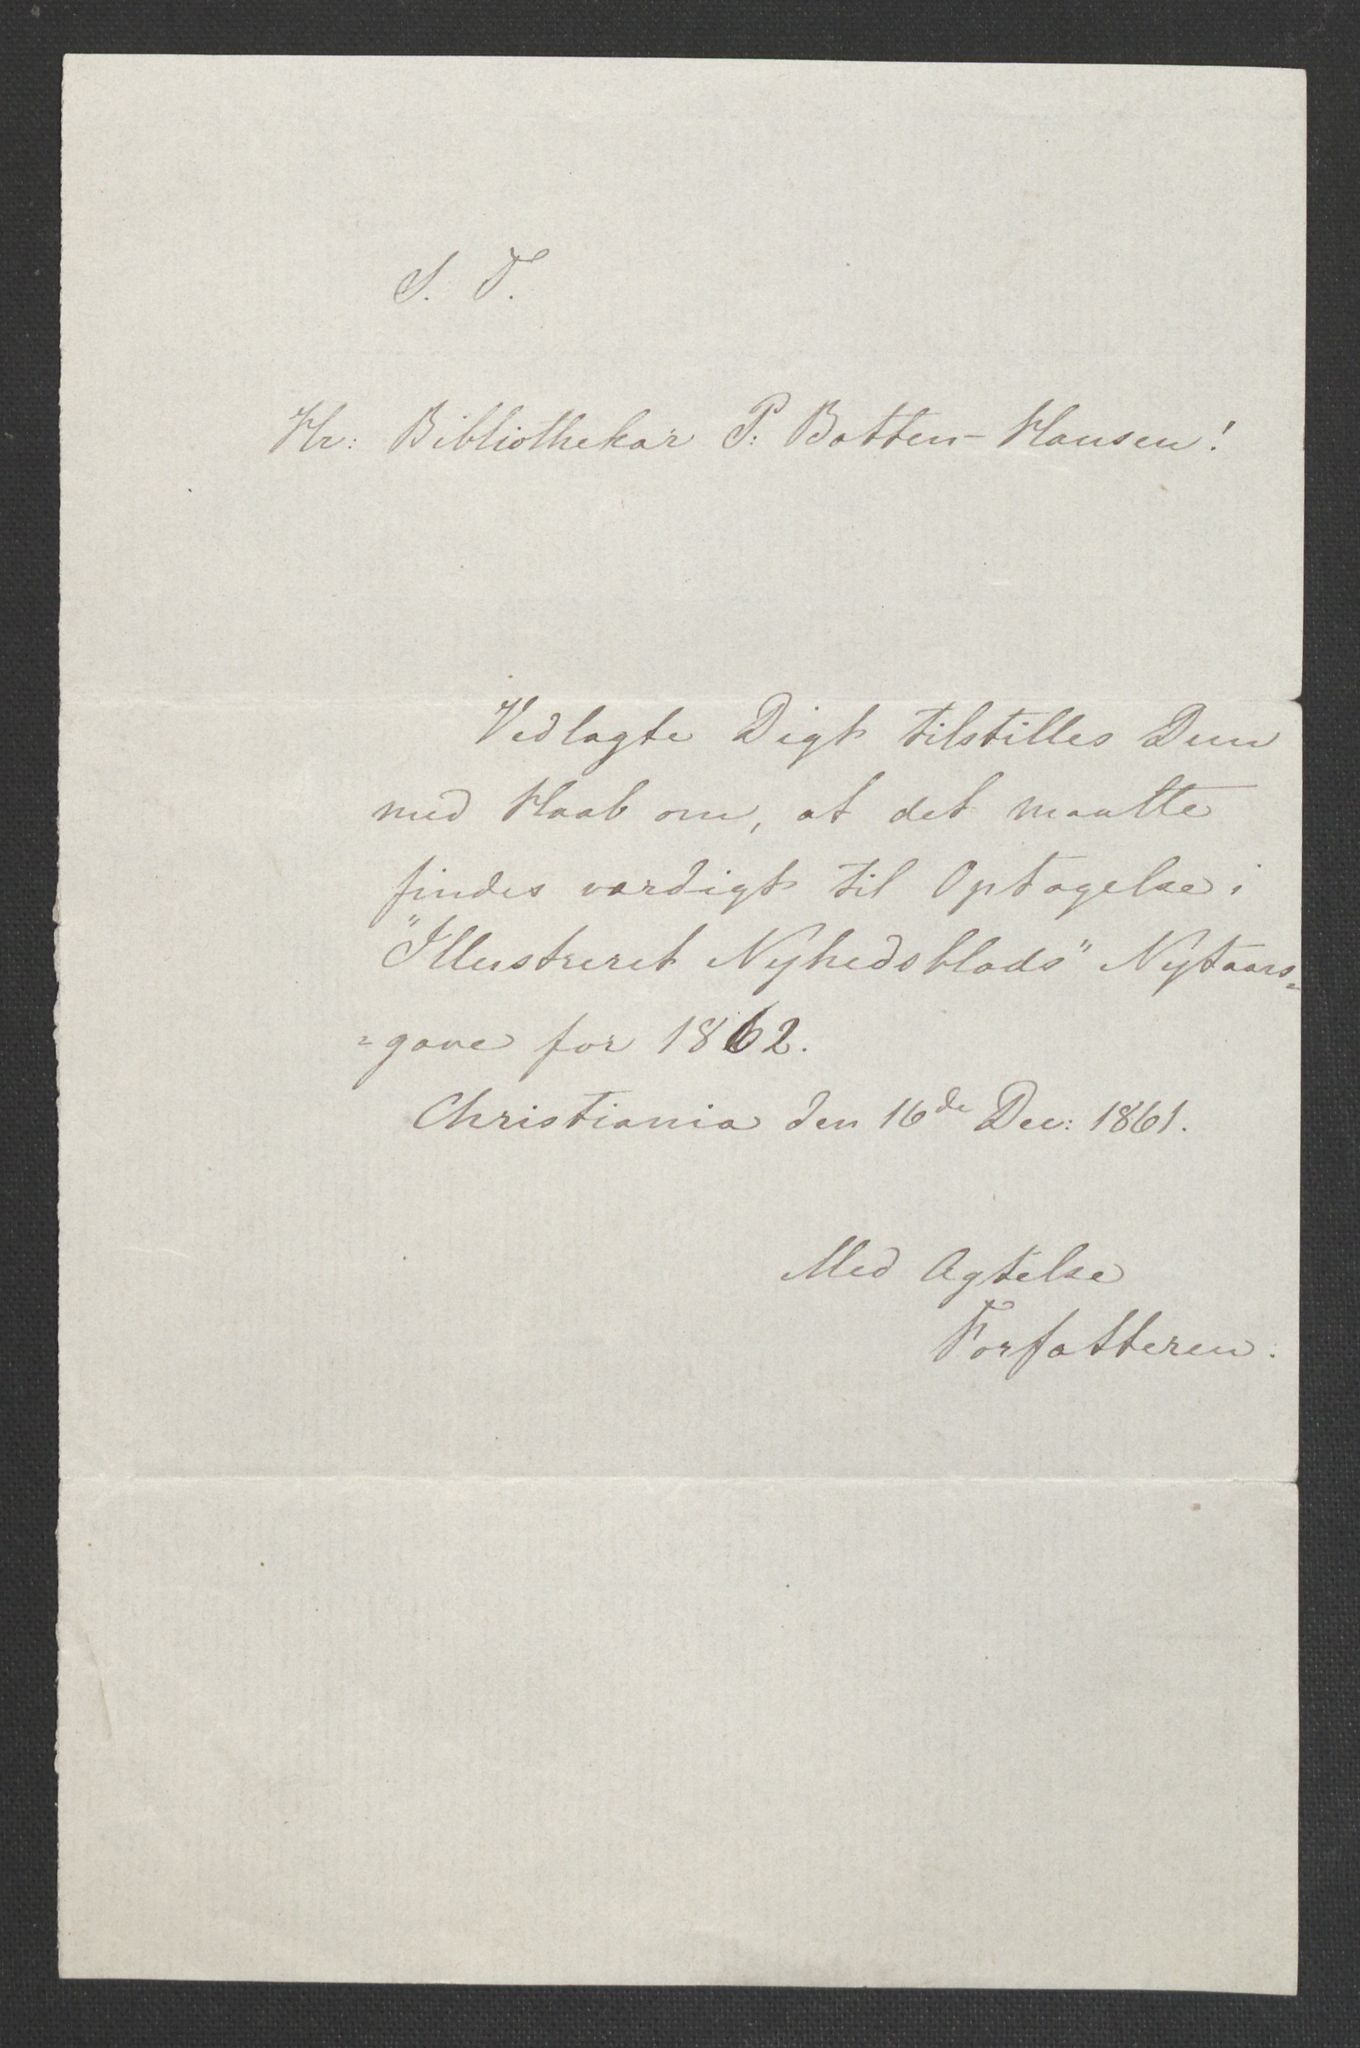 S. T.
Hr: Bibliothekar P: Botten-Hansen!
Vedlagte Digt tilstilles Dem
med Haab om, at det maatte
findes værdigt til Optagelse i
"Illustreret Nyhedsblads" Nytaars-
-gave for 1862.
Christiania den 16de Dec: 1861.
Med Agtelse
Forfatteren.